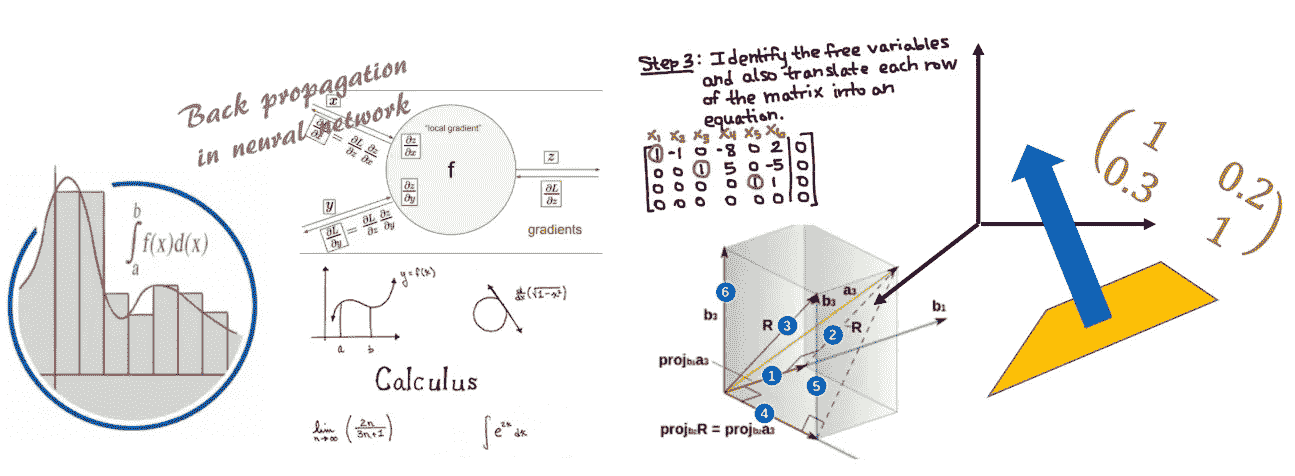 Back propagation
in neural network
x
"local gradient"
∂L/∂x = ∂L/∂z ∂z/∂x
∂z/∂x
f
z
∂L/∂z
∂z/∂y
y
∂L/∂y = ∂L/∂z ∂z/∂y
gradients
∫_a^b f(x)d(x)
y=f(x)
a b
d/dx(√1-x²)
Calculus
lim n→∞ (2n/3n+1)
∫e^2x dx
Step 3: Identify the free variables
and also translate each row
of the matrix into an
equation.
x₁ x₂ x₃ x₄ x₅ x₆
1 -1 0 -8 0 2 0
0 0 1 5 0 -5 0
0 0 0 0 1 1 0
0 0 0 0 0 0 0
6
b₃
a₃
b₃
R 3
2 -R
b₁
proj_b₁a₃
1
5
4
proj_b₂R = proj_b₂a₃
1 0.2
0.3 1